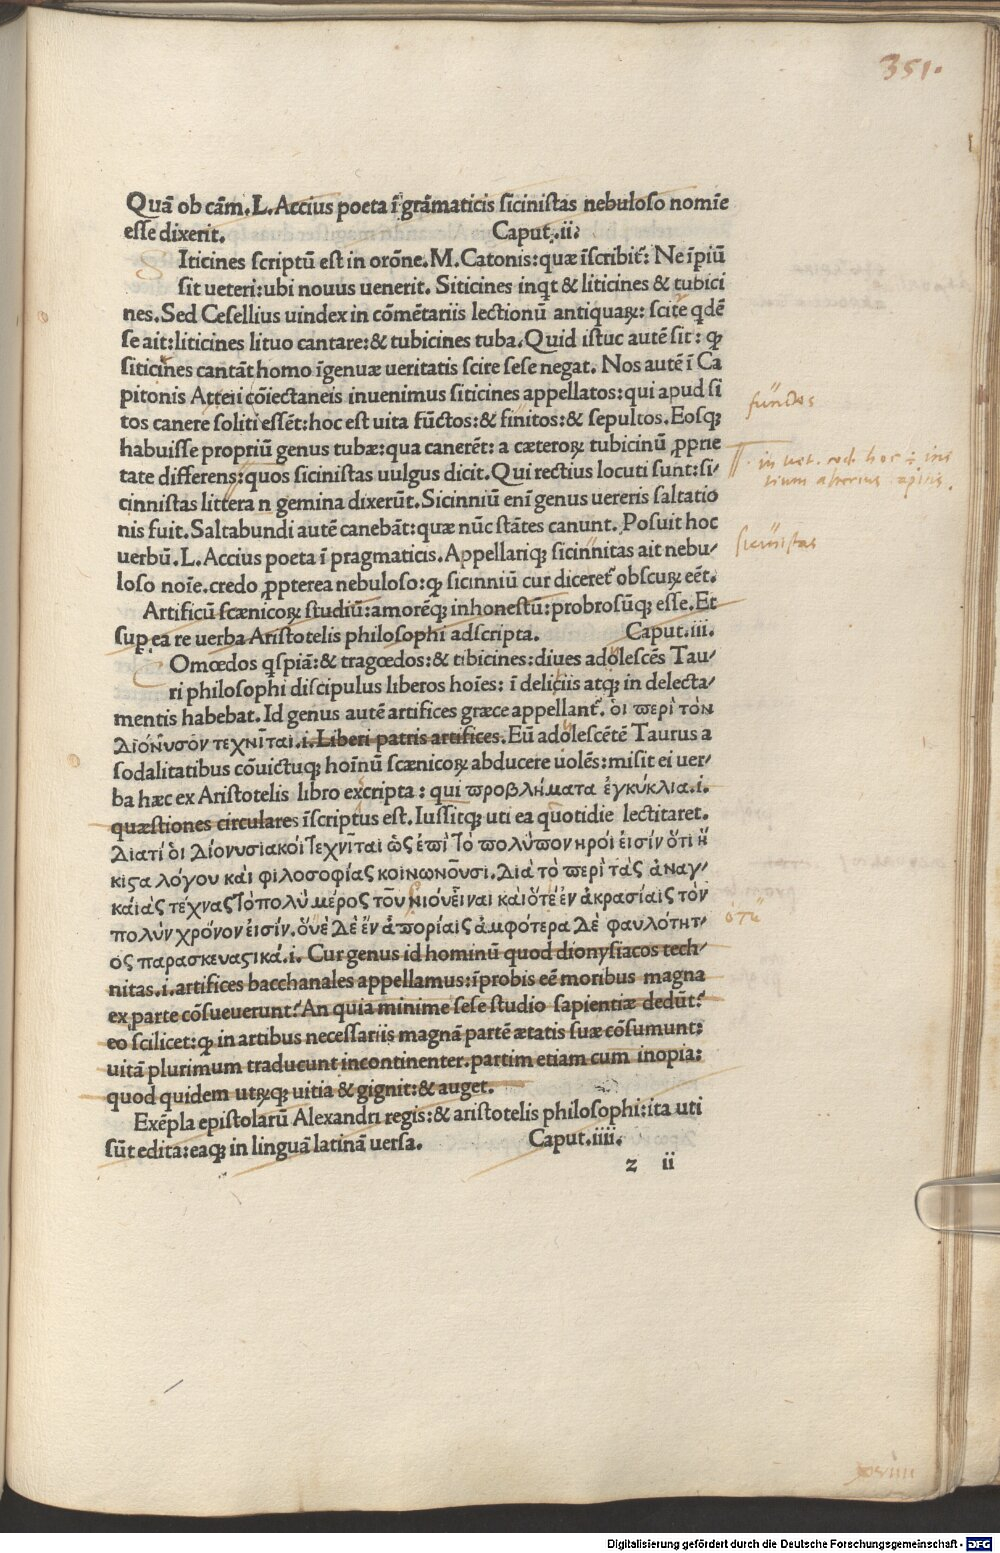 351.
Quā ob cām. L. Accius poeta ī grāmaticis sicinistas nebuloso nomīe
esse dixerit. Caput. ii.
S Iticines scriptū est in orōne. M. Catonis: quæ īscribit᷑: Ne īpiū
sit ueteri: ubi nouus uenerit. Siticines inqt & liticines & tubici
nes. Sed Cesellius uindex in cōmētariis lectionū antiquaꝝ: scite qdē
se ait: liticines lituo cantare: & tubicines tuba. Quid istuc autē sit: ꝙ
siticines cantāt homo īgenuæ ueritatis scire sese negat. Nos autē ī Ca
pitonis Atteii cōiectaneis inuenimus siticines appellatos: qui apud si
tos canere soliti essēt: hoc est uita fūctos: & finitos: & sepultos. Eosqꝫ
habuisse propriū genus tubæ: qua canerēt: a cæteroꝝ tubicinū ꝓprie
tate differens: quos sicinistas uulgus dicit. Qui rectius locuti sunt: si-
cinnistas littera n gemina dixerūt. Sicinniū enī genus uereris saltatio
nis fuit. Saltabundi autē canebāt: quæ nūc stātes canunt. Posuit hoc
uerbū. L. Accius poeta ī pragmaticis. Appellariqꝫ sicinnitas ait nebu-
loso noīe. credo ꝓpterea nebuloso: ꝙ sicinniū cur diceret᷑ obscuꝝ eēt.
Artificū scænicoꝝ studiū: amorēqꝫ inhonestū: probrosūqꝫ esse. Et
suꝑ ea re uerba Aristotelis philosophi adscripta. Caput. iii.
C Omœdos qspiā: & tragœdos: & tibicines: diues adolescēs Tau-
ri philosophi discipulus liberos hoīes: ī deliciis atqꝫ in delecta-
mentis habebat. Id genus autē artifices græce appellant᷑. ὁι ϖερὶ τὸν
Διόνυσον τεχνῖται. i. Liberi patris artifices. Eū adolescētē Taurus a
sodalitatibus cōuictuqꝫ hoīnū scænicoꝝ abducere uolēs: misit ei uer-
ba hæc ex Aristotelis libro excripta: qui ϖροβλήματα ἐγκύκλια. i.
quæstiones circulares īscriptus est. Iussitqꝫ uti ea quotidie lectitaret.
Διατί ὁι Διονυσιακοί τεχνῖται ὡς ἐϖὶ τὸ ϖολὺ ϖονηροί ἐισίν ὅτι ἥ
κιϛα λόγου κὰι φιλοσοφίας κοινωνοῦσι. Διὰ τὸ ϖερὶ τὰς ἀναγ-
κάιὰς τέχνας τὸ πολὺ μέρος τοῦ νιόυ ἐῖναι κὰι ὅτε ἐν ἀκρασίαις τὸν
πολὺν χρόνον ἐισίν. ὅυὲ Δὲ ἔν ἀπορίαις ἀμφότερα Δὲ φαυλότητ-
ος παρασκευαϛικά. i. Cur genus id hominū quod dionysiacos tech-
nitas. i. artifices bacchanales appellamus: īprobis eē moribus magna
ex parte cōsueuerunt? An quia minime sese studio sapientiæ dedūt?
eo scilicet: ꝙ in artibus necessariis magnā partē ætatis suæ cōsumunt:
uitā plurimum traducunt incontinenter. partim etiam cum inopia:
quod quidem utꝝqꝫ uitia & gignit: & auget.
Exēpla epistolarū Alexandri regis: & aristotelis philosophi: ita uti
sūt edita: eaqꝫ in linguā latinā uersa. Caput. iiii.
z ii
functos
in uet. cod. hoc ÷ ini
tium alterius
sicinistas
ὁτι
Digitalisierung gefördert durch die Deutsche Forschungsgemeinschaft - DFG